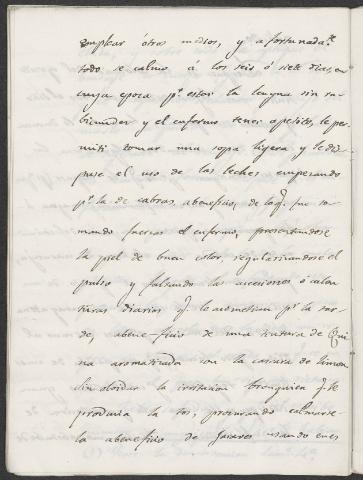 emplear ótros medios, y afortunadate
todo se calmo á los seis ó siete dias, en
cuya epoca pr estar la lengua sin ru-
bicundez y el enfermo tener apetito, le per
miti tomar una sopa lijera y le dis
puse el uso de las leches empezando
pr la de cabras, a beneficio, de lo q. fue to-
mando fuerzas el enfermo, presentandose
la piel de buen color, regularizandose el
pulso y faltando las accesiones ó calen
turas diarias q. le acometian pr la tar-
de, a bene-ficio de una tintura de Qui
na aromatizada con la cascara de limon
sin olvidar la irritacion bronquica q. le
producia la tos; procurando calmarse-
la a beneficio de jaraves usando en es